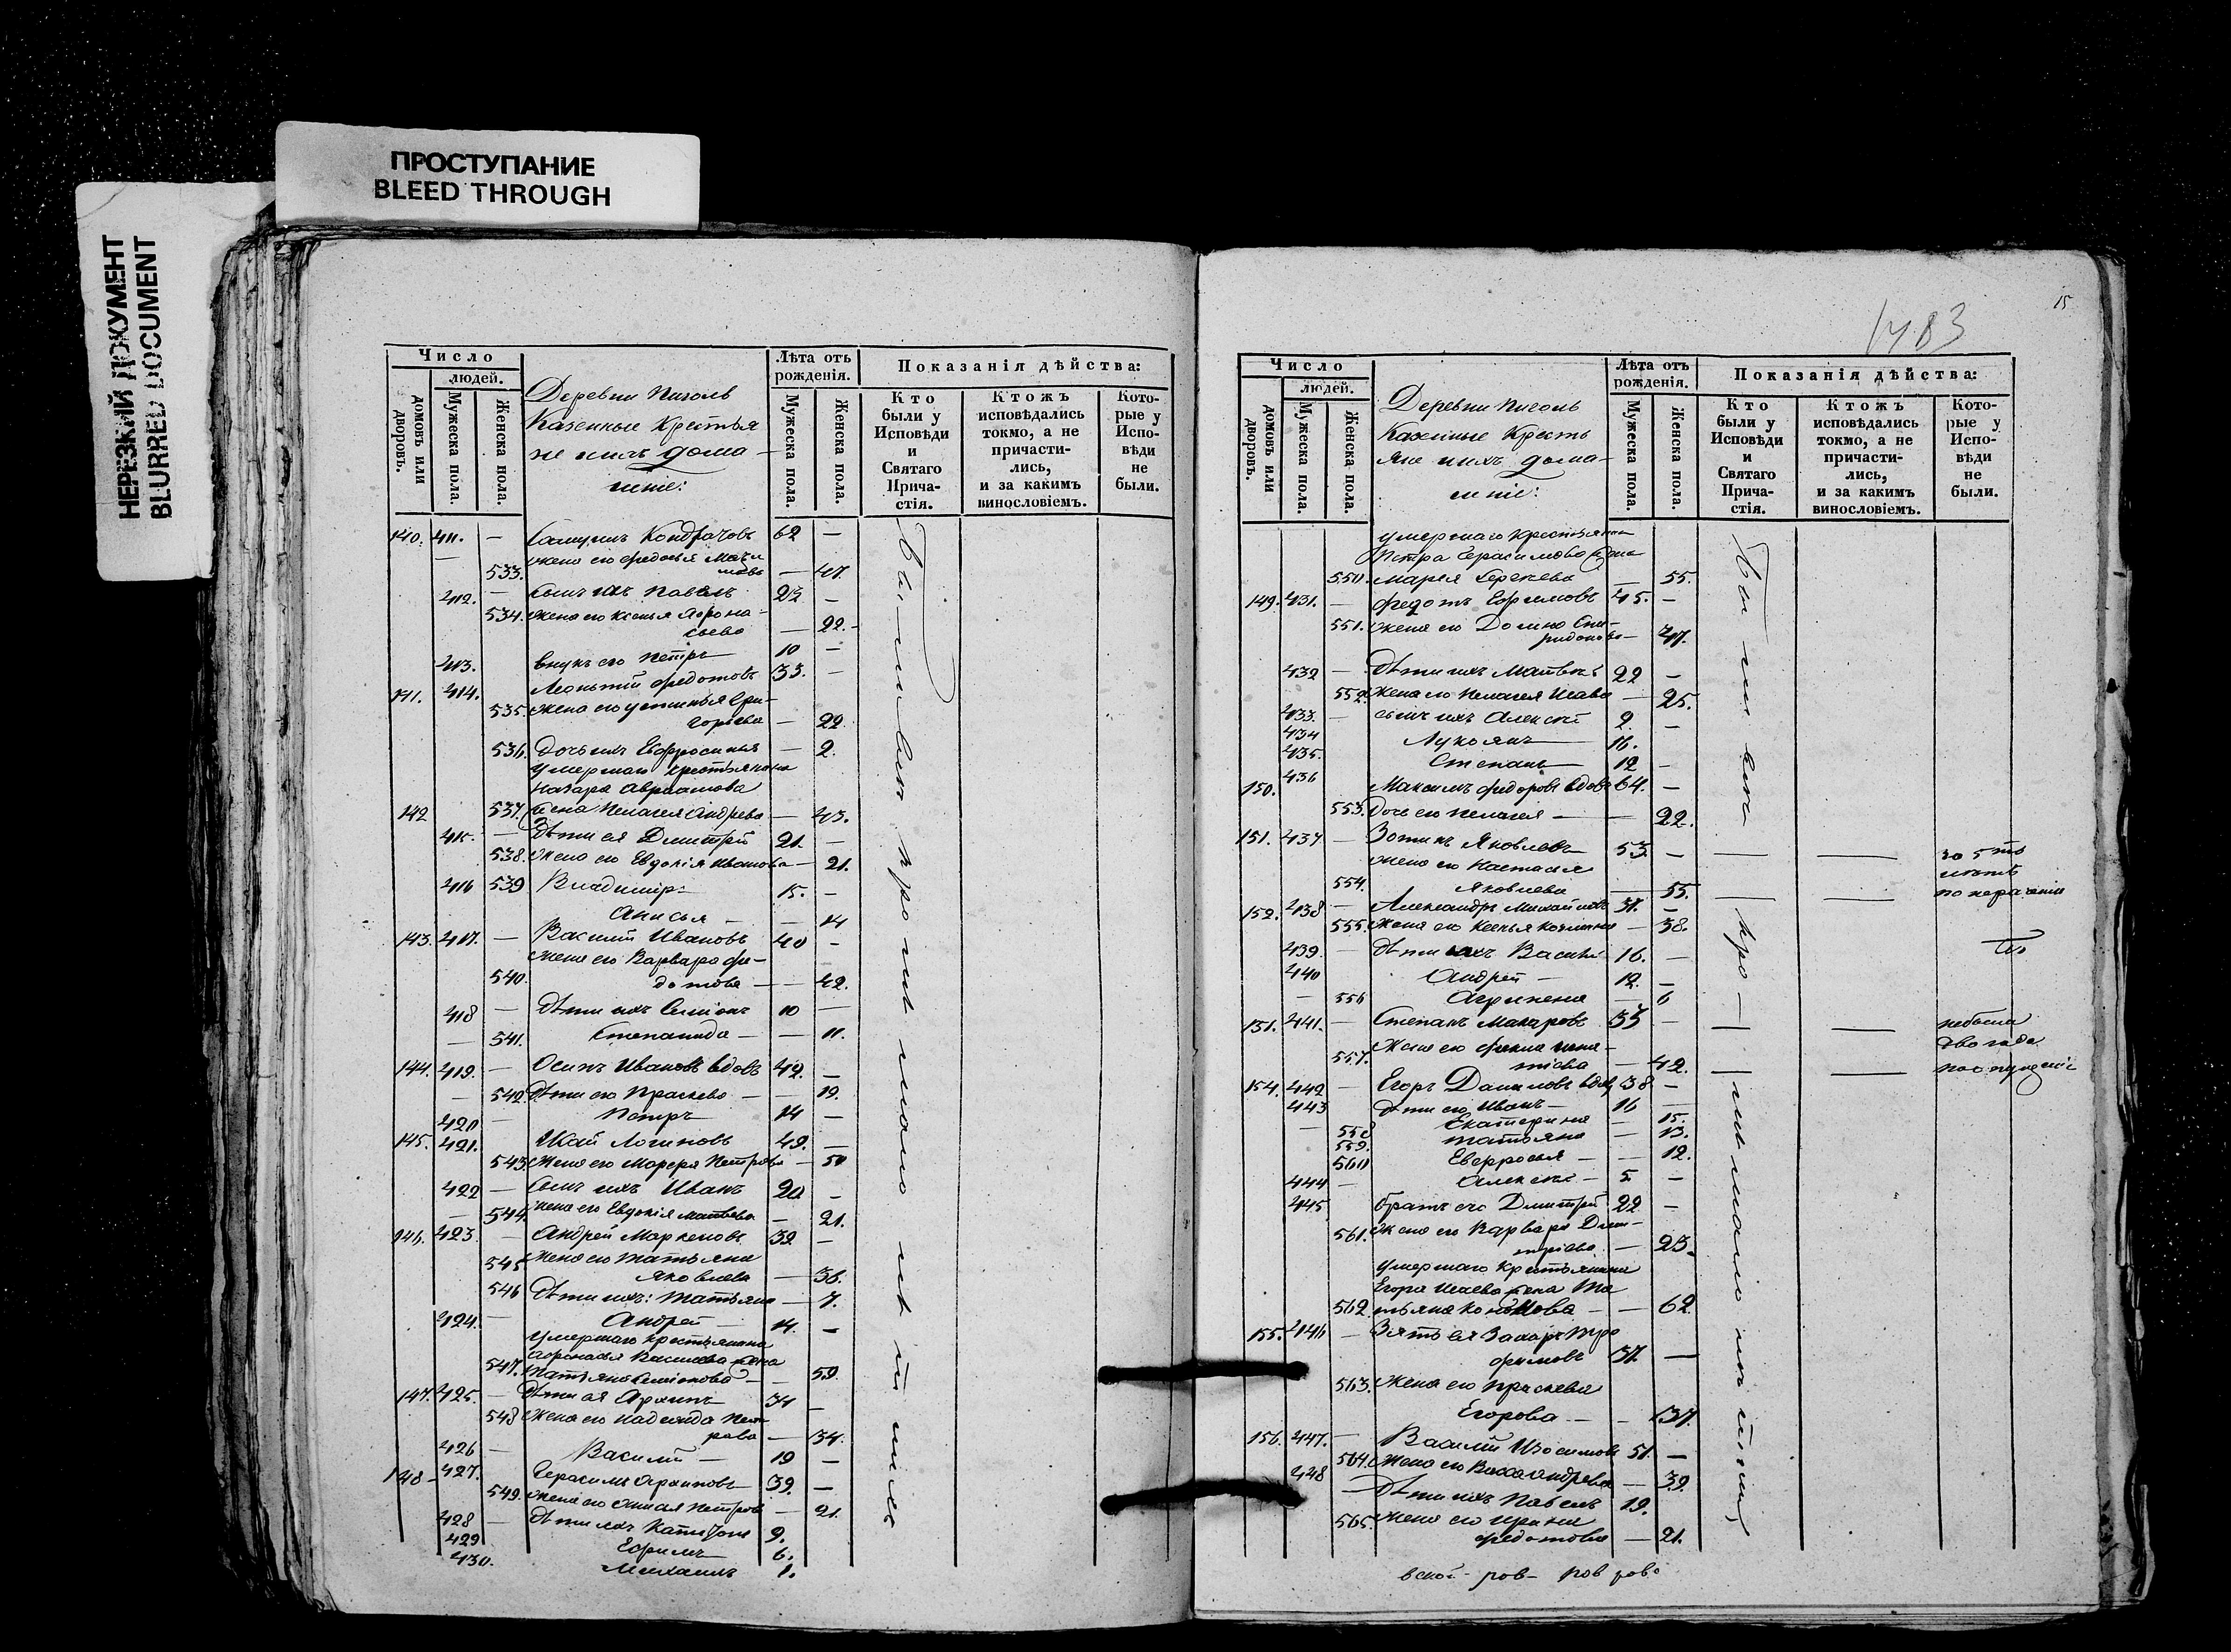 ПРОСТУПАНИЕ
BLEED THROUGH
НЕРЕЗКИЙ ДОКУМЕНТ
BLURRED DOCUMENT
Число
людей.
домовъ или дворовъ.
Мужеска пола.
Женска пола.
Деревни
Казенные Крестья
не ихъ дома-
шніе:
Лѣта отъ рожденія.
Мужеска пола.
Женска пола.
Показанія дѣйства:
Кто были у Исповѣди и Святаго Прича-стія.
Ктожъ исповѣдались токмо, а не причасти-лись, и за какимъ винословіемъ.
Кото-рые у Испо-вѣди не были.
140. 411. — Кондрачовъ 62 —
533. жена его Федосья — 47.
412. — сынъ ихъ Павелъ 23 —
534. жена его Ксенья Афона-
сьева — 22.
413. внукъ его Петръ 10 —
141. 414. Леонтій Федотовъ 33. —
535. жена его Устинья Гри-
горьева — 22.
536. дочь ихъ Евфросинья — 2.
умершаго крестьянина
Назара Авраамова
142 537. жена Пелагея Андрева — 43.
415. — дѣти ея Дмитрей 21. —
538. жена его Евдокія Иванова — 21.
416 539 Владимiръ 15. —
Анисья — — 14
143. 417. — Василій Ивановъ 40 —
жена его Варвара Фе-
540. дотова — — 42.
418 — дѣти ихъ Симіонъ 10 —
— 541. Степанида — — 11.
144. 419. — Осипъ Ивановъ вдовъ 42. —
— 542. дѣти его Прасковья — — 19.
420 — Петръ 14 —
145. 421. Логиновъ 49. —
543. жена его Марфа Петрова — 50
422 — сынъ ихъ Иванъ 20 —
— 544. жена его Евдокія Матвева — 21.
146. 423. — Андрей Маркеловъ 39 —
545 жена его Татьяна
Яковлева — 36.
546 дѣти ихъ: Татьяна — 7.
424. — Андрей — 14. —
умершаго крестьянина
Афонасья Васильева жена
547. Татьяна Симіонова — — 59
147. 425. — дѣти ея Архипъ 34 —
548 жена его Надежда Пет-
рова — 34.
426 — Василій — 19 —
148 427. Герасимъ Архиповъ 39. —
549. жена его Анисья Петрова — 21.
428 — дѣти ихъ Капитонъ 9.
429 Ефимъ 6.
430. Михаилъ 1.
15
1483
Число
людей.
домовъ или дворовъ.
Мужеска пола.
Женска пола.
Деревни
Казенные Кресть
яне ихъ дома-
шніе:
Лѣта отъ рожденія.
Мужеска пола.
Женска пола.
Показанія дѣйства:
Кто были у Исповѣди и Святаго Прича-стія.
Ктожъ исповѣдались токмо, а не причасти-лись, и за какимъ винословіемъ.
Кото-рые у Испо-вѣди не были.
умершаго крестьянина
Петра Герасимова жена
550. Марья Сергева — 55.
149. 431. — Федотъ Ефимовъ 45. —
551. жена его Домна Спи-
ридонова — 47.
432 — дѣти ихъ Матвей 22 —
552. жена его Пелагея Исаева — 25.
433. — сынъ ихъ Алексѣй 2 —
434 Лукоянъ 16.
435. Степанъ 12 —
150. 436 Максимъ Федоровъ вдовъ 64. —
553. дочь его Пелагея — — 22.
151. 437 — Зотикъ Яковлевъ 53. — | —
жена его Настасья
554. Яковлева — 55.
за 5 ть
лѣтъ
по нераденію
152. 438 — Александръ Михайловъ 37. —
555. жена его Ксенья — 38.
439. — дѣти ихъ Василій 16. —
440 Андрей — 12. —
— 556 Агрипена — 6
151. 441. — Степанъ Макаровъ 35 —
жена его Фекла Игна-
557. тіева — 42.
небыла
два года
по опущенію
154. 442 — Егоръ Даниловъ вдовъ 38 —
443 дѣти его Иванъ — 16 —
— 558 Екатерина — 15.
559. Татьяна — 13.
560 Еверросья — — 12.
444 — Алексѣй — 5 —
445 братъ его Дмитрей 22 —
561. жена его Варвара Дми-
тріева — 23.
умершаго Крестьянина
Егора Исаева жена Та
562 тьяна — — 62
155. 446 — Зять ея Захаръ Тро
фимовъ 37. —
563. жена его Прасковья
Егорова — — 37.
156. 447. — Василій Изосимовъ 51. —
564. жена его Васса Андрева — 39.
448 — дѣти ихъ Павелъ 19.
565. жена его Ирина
Федотова — 21.